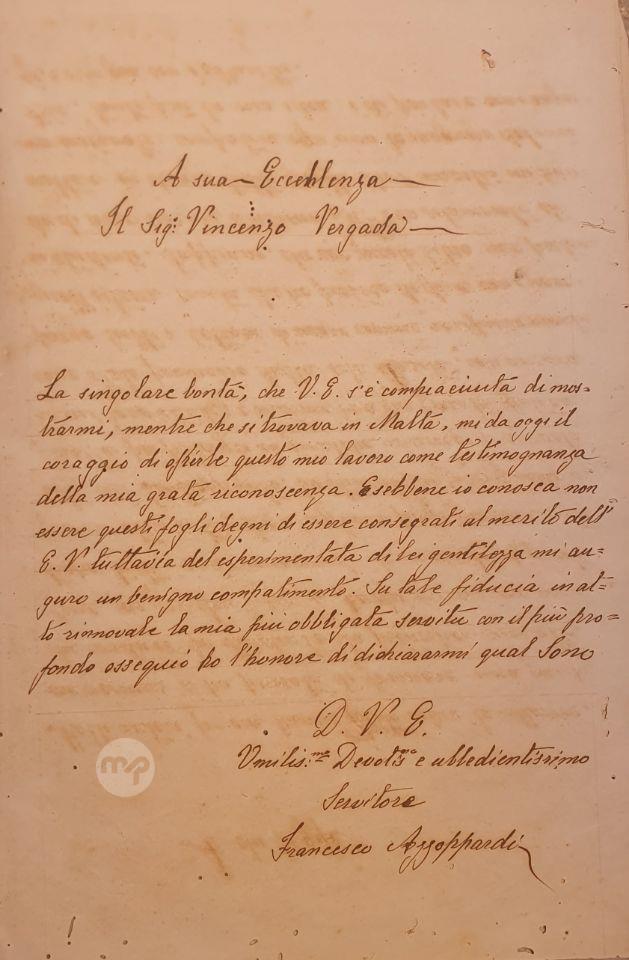 A sua Eccehlenza
Il Sig: Vincenzo Vergada
La singolare bontà, che V. E. s'è compiaciuta di mos=
trarmi, mentre che si trovava in Malta, mi da oggi il
coraggio di offrirle questo mio lavoro come testimognanza
della mia grata riconoscenza. E sebbene io conosca non
essere questi fogli degni di essere consegrati al merito dell'
E. V. tuttavia del esperimentata di lei gentilezza mi au=
guro un benigno compatimento. Su tale fiducia in at=
to rinnovale la mia più obbligata servitù con il più pro=
fondo ossequio ho l'honore di dichiararmi qual Sono
D. V. E.
Umilis.mo Devotis.mo e ubbedientissimo
Servitore
Francesco Azzoppardi
mp